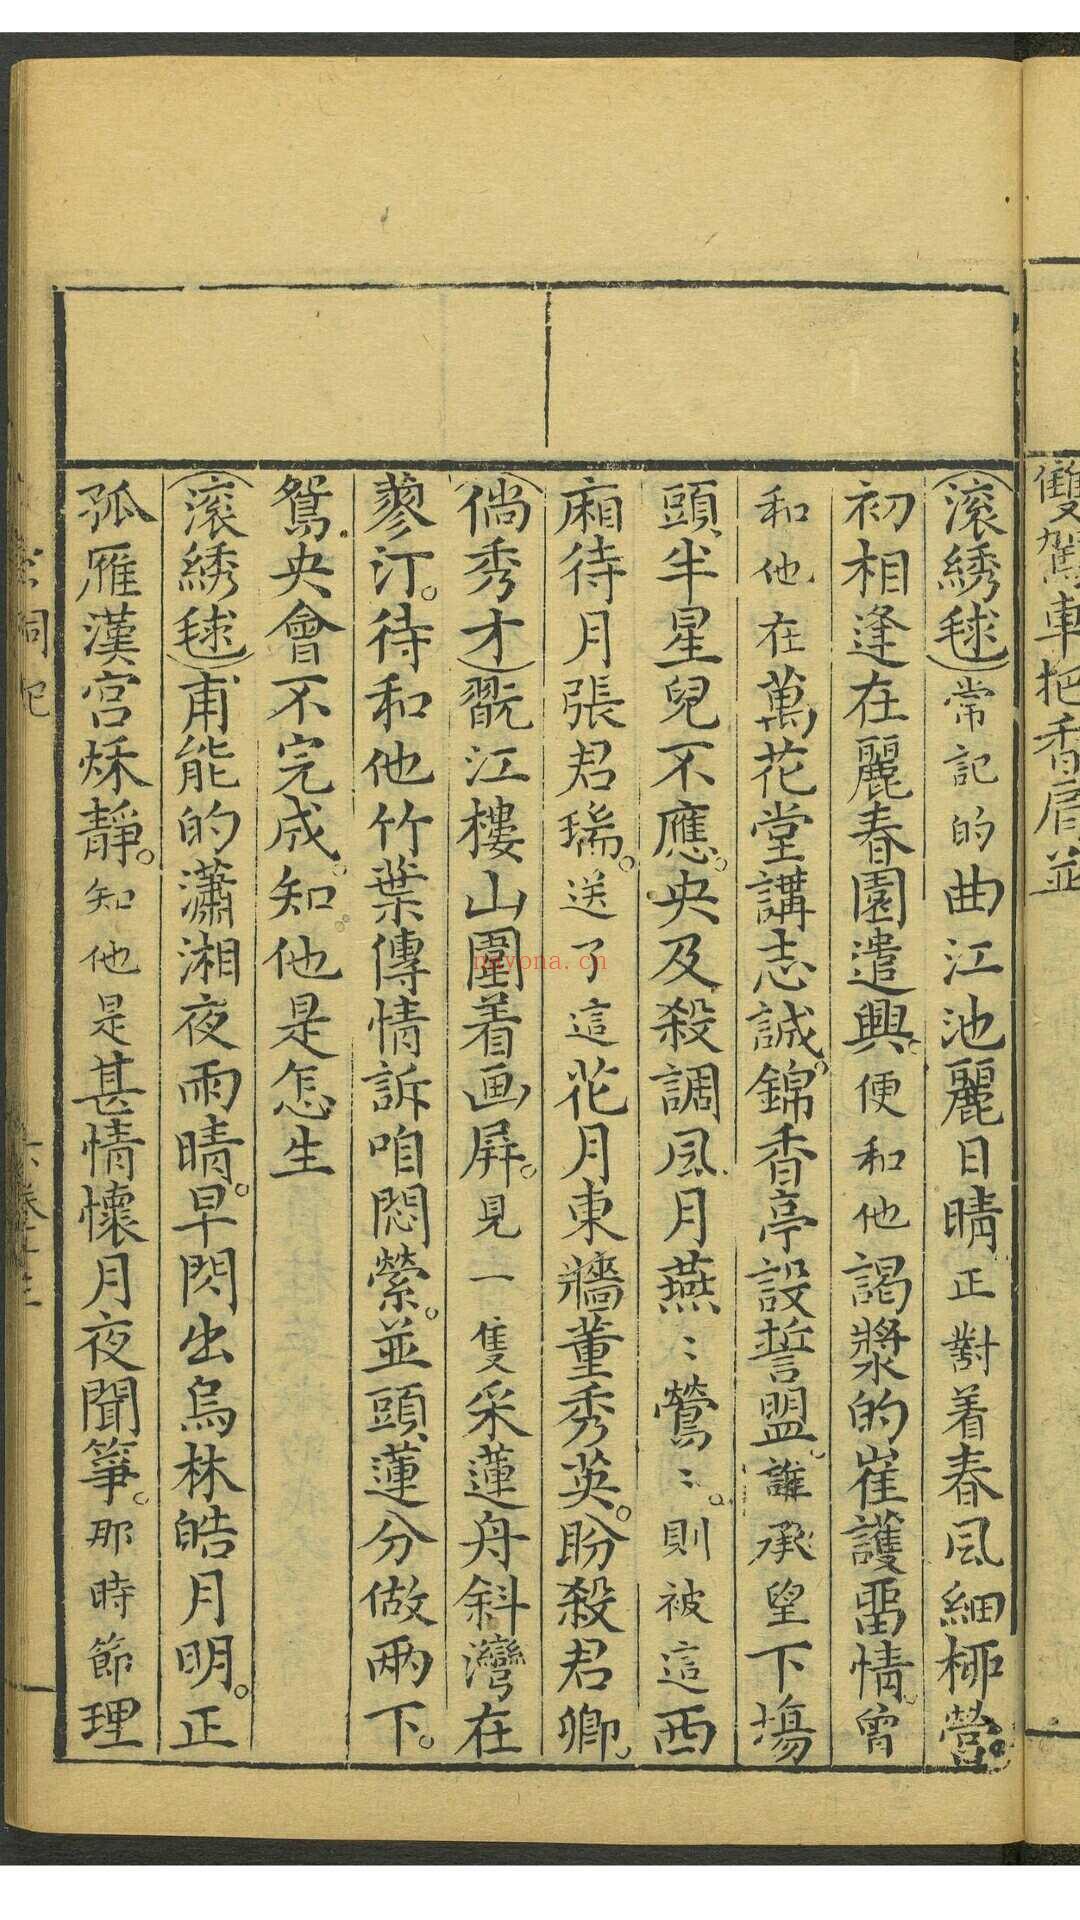 雙駕車把香肩並
（滾綉毬）常記的曲江池麗日晴正對着春風細柳營。
初相逢在麗春園遣興。便和他謁漿的崔護畱情。曾
和他在萬花堂講志誠。錦香亭設誓盟。誰承望下場
頭半星兒不應。央及殺調風月燕〻鶯〻。則被這西
廂待月張君瑞。送了這花月東牆董秀英。盼殺君卿。
（倘秀才）翫江樓山圍着画屏。見一隻采蓮舟斜灣在
蓼汀。待和他竹葉傳情訴咱悶縈。並頭蓮分做兩下。
鴛央會不完成。知他是怎生
（滾綉毬）甫能的瀟湘夜雨晴。早閃出烏林皓月明。正
孤雁漢宮秌靜。知他是甚情懷月夜聞箏。那時節理
nayona.cn